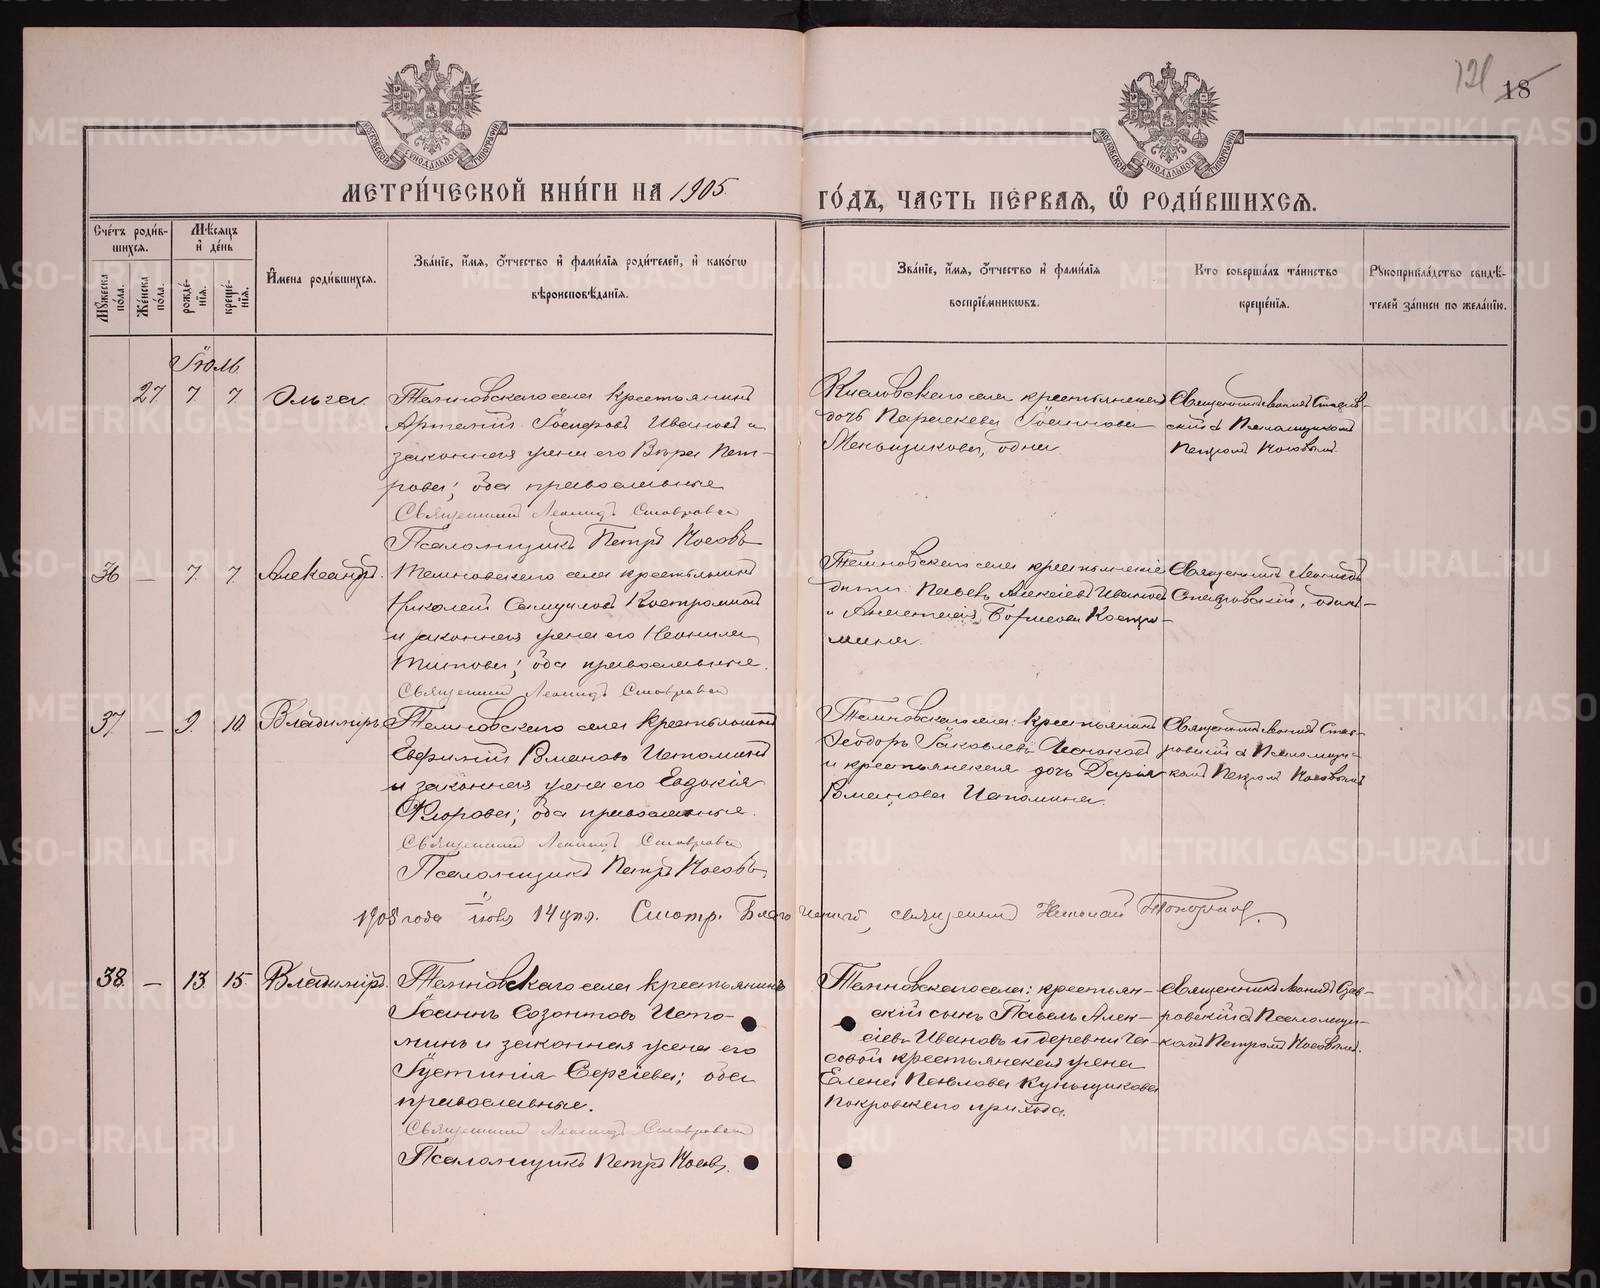 121
18
МЕТРИ́ЧЕСКОЙ КНИ́ГИ НА 1905
ГО́ДЪ, ЧАСТЬ ПЕ́РВАѦ, Ѡ РОДИ́ВШИХСѦ.
Сче́тъ роди́в-
шихсѧ.
Мѣ́сѧцъ
и де́нь
Му́жеска по́ла.
Же́нска по́ла.
рожде́-
нїѧ.
креще́-
нїѧ.
И҆мена роди́вшихсѧ.
Зва́нїе, и҆́мѧ, ѻ҆́тчество и҆ фами́лїѧ роди́телей, и҆ како́гѡ
вѣроисповѣ́данїѧ.
Зва́нїе, и҆́мѧ, ѻ҆́тчество и҆ фами́лїѧ
воспрїе́мникѡвъ.
Кто̀ соверша́лъ та́инство
креще́нїѧ.
Рꙋкоприкла́дство свидѣ́-
телей за́писи по жела́нїю.
Іюль
27 7 7 Ольга
Темновскаго села крестьянинъ
Артемій Іосифовъ Ивановъ и
законная жена его Вѣра Пет-
рова; оба православные
Священникъ Леонидъ Ставровскій
Псаломщикъ Петръ Носовъ
села крестьянская
дочь Параскева Іоаннова
Меньщикова, одна
Священникъ Леонидъ Ставров-
скій съ Псаломщикомъ
Петромъ Носовымъ
36 — 7 7 Александръ.
Темновскаго села крестьянинъ
Николай Самуиловъ Костроминъ
и законная жена его Неонила
Титова; оба православные.
Священникъ Леонидъ Ставровскій
Темновскаго села крестьянскіе
дѣти: Павелъ Алексіевъ Ивановъ
и Анастасія Борисова Костро-
мина.
Священникъ Леонидъ
Ставровскій, одинъ—
37 — 9. 10. Владиміръ
Темновскаго села крестьянинъ
Евфимій Романовъ Истоминъ
и законная жена его Евдокія
Флорова; оба православные.
Священникъ Леонидъ Ставровскій
Псаломщикъ Петръ Носовъ
Темновскаго села: крестьянинъ
Ѳеодоръ Іаковлевъ
и крестьянская дочь Дарія
Романова Истомина
Священникъ Леонидъ Став-
ровскій съ Псаломщи-
комъ Петромъ Носовымъ
1908 года іюня 14 дня. Смотр. Благочинный, священникъ Николай Топорковъ.
38. — 13. 15. Владиміръ.
Темновскаго села крестьянинъ
Іоаннъ Созонтовъ Исто-
минъ и законная жена его
Іустинія Сергіева; оба
православные.
Священникъ Леонидъ Ставровскій
Псаломщикъ Петръ Носовъ.
Темновскаго села: крестьян-
скій сынъ Павелъ Алек-
сіевъ Ивановъ и деревни Ча-
совой крестьянская жена
Елена Павлова
Покровскаго прихода.
Священникъ Леонидъ Став-
ровскій съ Псаломщи-
комъ Петромъ Носовымъ.